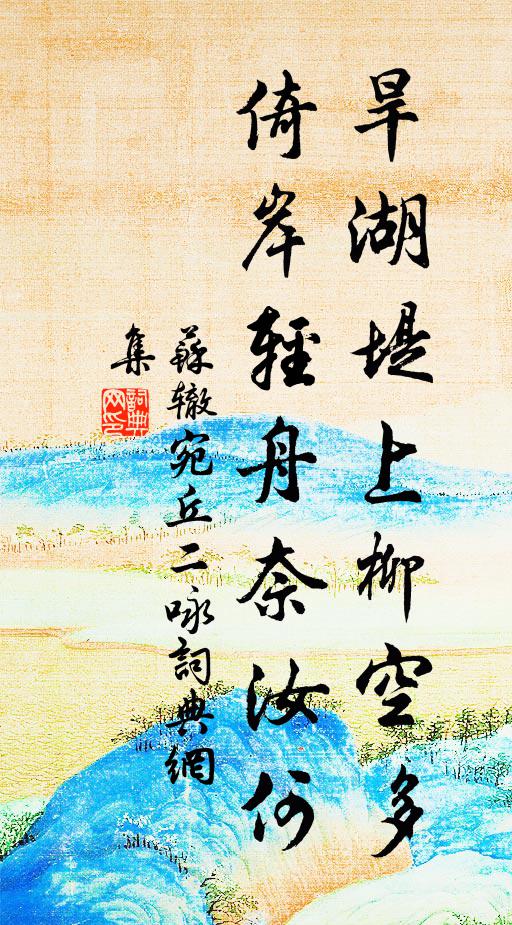 旱湖堤上柳空多
倚岸輕舟奈汝何
蘇轍宛丘二咏詞典網
集
詞典
网印